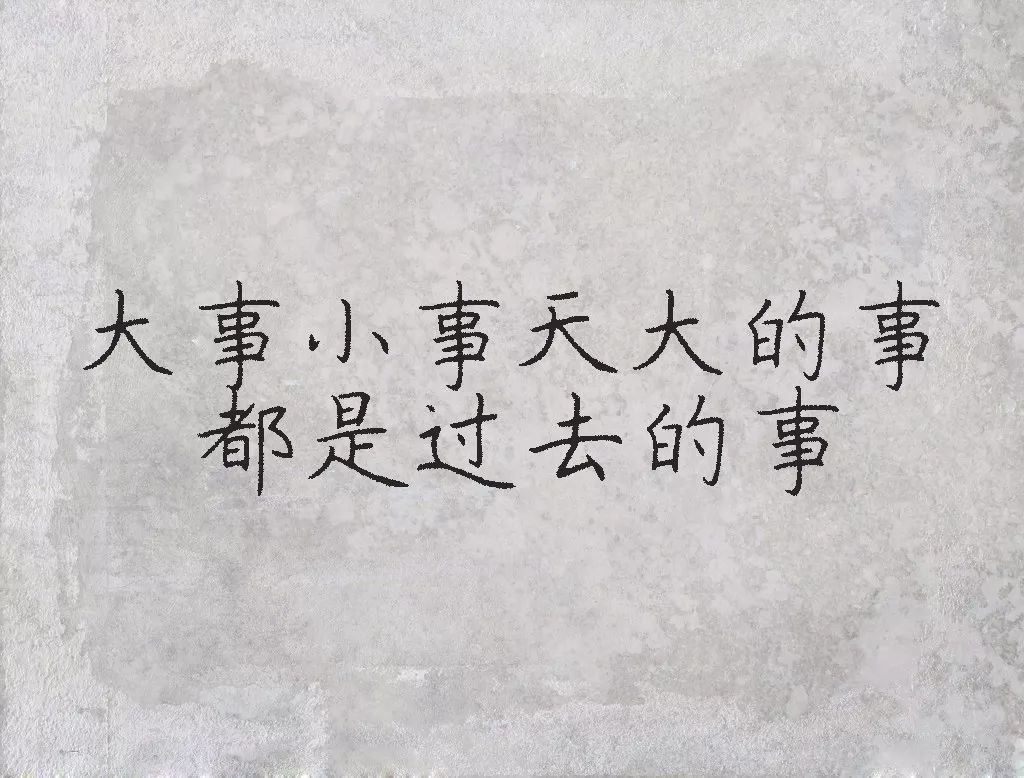 大事小事天大的事
都是过去的事